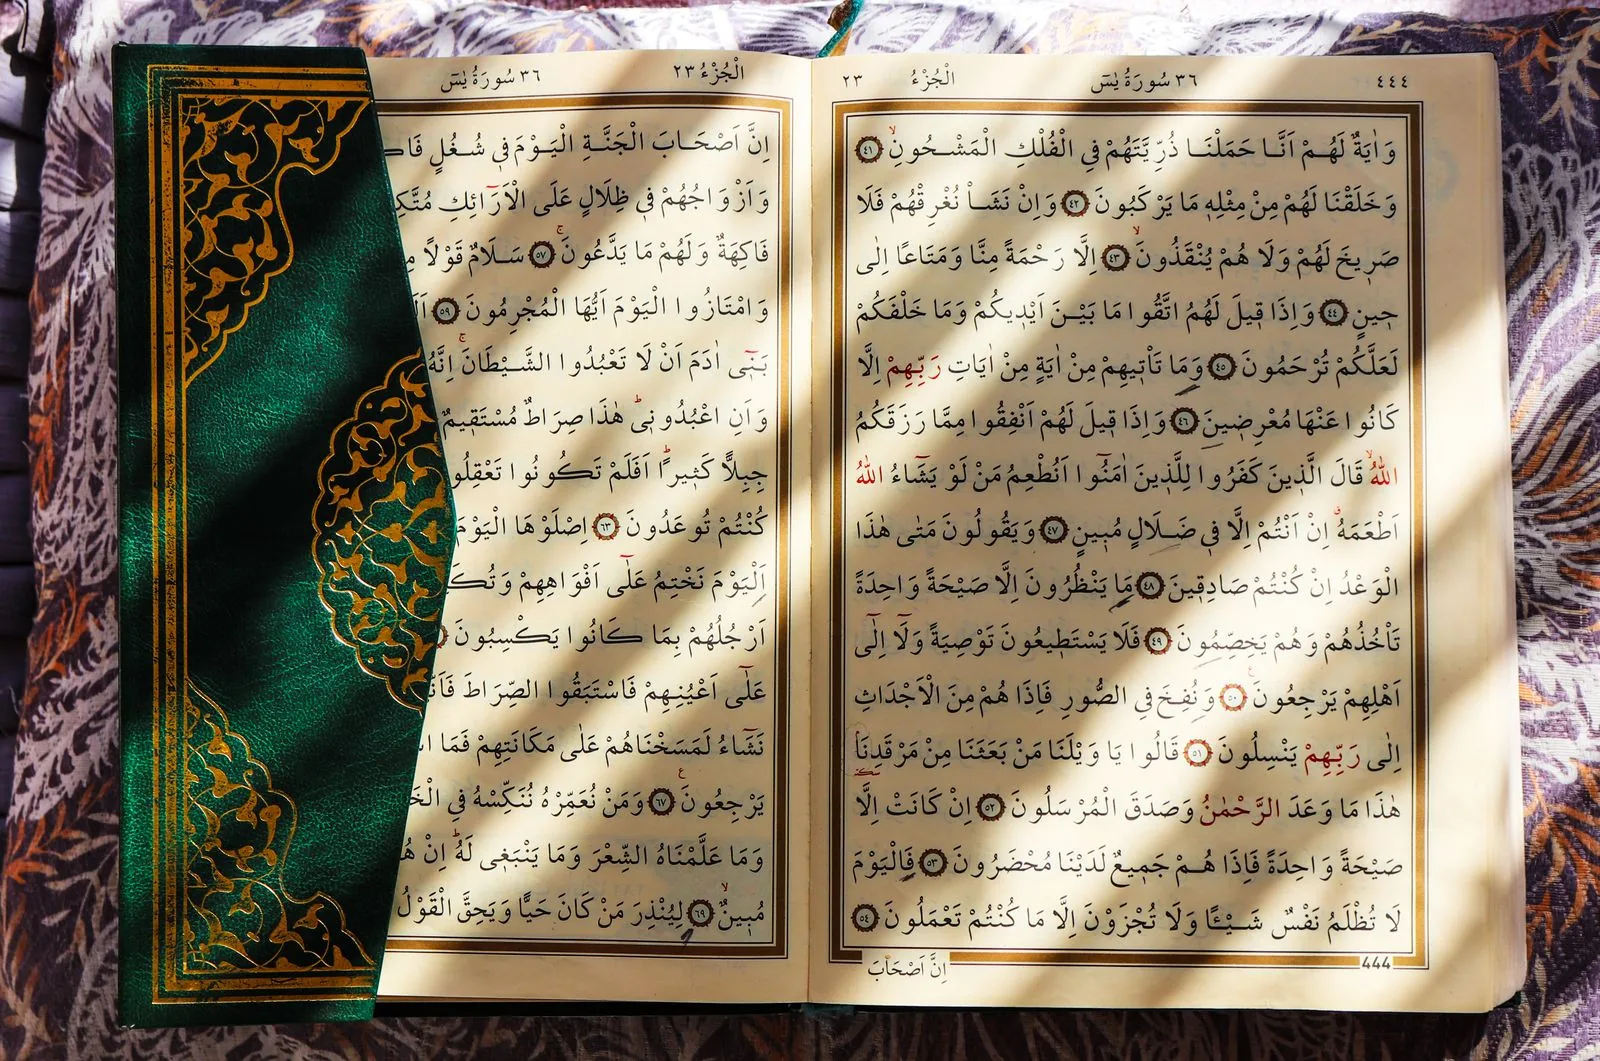 ٤٤٤ ٣٦ سُورَةُ يٰسٓ اَلْجُزْءُ ٢٣
وَاٰيَةٌ لَهُمْ اَنَّا حَمَلْنَا ذُرِّيَّتَهُمْ فِي الْفُلْكِ الْمَشْحُونِۙ ٤١
وَخَلَقْنَا لَهُمْ مِنْ مِثْلِهٖ مَا يَرْكَبُونَ ٤٢ وَاِنْ نَشَأْ نُغْرِقْهُمْ فَلَا
صَرٖيخَ لَهُمْ وَلَا هُمْ يُنْقَذُونَۙ ٤٣ اِلَّا رَحْمَةً مِنَّا وَمَتَاعًا اِلٰى
حٖينٍ ٤٤ وَاِذَا قٖيلَ لَهُمُ اتَّقُوا مَا بَيْنَ اَيْدٖيكُمْ وَمَا خَلْفَكُمْ
لَعَلَّكُمْ تُرْحَمُونَ ٤٥ وَمَا تَأْتٖيهِمْ مِنْ اٰيَةٍ مِنْ اٰيَاتِ رَبِّهِمْ اِلَّا
كَانُوا عَنْهَا مُعْرِضٖينَ ٤٦ وَاِذَا قٖيلَ لَهُمْ اَنْفِقُوا مِمَّا رَزَقَكُمُ
اللّٰهُۙ قَالَ الَّذٖينَ كَفَرُوا لِلَّذٖينَ اٰمَنُٓوا اَنُطْعِمُ مَنْ لَوْ يَشَٓاءُ اللّٰهُ
اَطْعَمَهُۗ اِنْ اَنْتُمْ اِلَّا فٖي ضَلَالٍ مُبٖينٍ ٤٧ وَيَقُولُونَ مَتٰى هٰذَا
الْوَعْدُ اِنْ كُنْتُمْ صَادِقٖينَ ٤٨ مَا يَنْظُرُونَ اِلَّا صَيْحَةً وَاحِدَةً
تَأْخُذُهُمْ وَهُمْ يَخِصِّمُونَ ٤٩ فَلَا يَسْتَطٖيعُونَ تَوْصِيَةً وَلَٓا اِلٰٓى
اَهْلِهِمْ يَرْجِعُونَࣖ ٥٠ وَنُفِخَ فِي الصُّورِ فَاِذَا هُمْ مِنَ الْاَجْدَاثِ
اِلٰى رَبِّهِمْ يَنْسِلُونَ ٥١ قَالُوا يَا وَيْلَنَا مَنْ بَعَثَنَا مِنْ مَرْقَدِنَا
هٰذَا مَا وَعَدَ الرَّحْمٰنُ وَصَدَقَ الْمُرْسَلُونَ ٥٢ اِنْ كَانَتْ اِلَّا
صَيْحَةً وَاحِدَةً فَاِذَا هُمْ جَمٖيعٌ لَدَيْنَا مُحْضَرُونَ ٥٣ فَالْيَوْمَ
لَا تُظْلَمُ نَفْسٌ شَيْـًٔا وَلَا تُجْزَوْنَ اِلَّا مَا كُنْتُمْ تَعْمَلُونَ ٥٤
444
اِنَّ اَصْحَابَ
اَلْجُزْءُ ٢٣ ٣٦ سُورَةُ يٰسٓ
اِنَّ اَصْحَابَ الْجَنَّةِ الْيَوْمَ فٖي شُغُلٍ
وَاَزْوَاجُهُمْ فٖي ظِلَالٍ عَلَى الْاَرَٓائِكِ
فَاكِهَةٌ وَلَهُمْ مَا يَدَّعُونَۚ ٥٧ سَلَامٌ قَوْلًا
وَامْتَازُوا الْيَوْمَ اَيُّهَا الْمُجْرِمُونَ ٥٩
بَنٖٓي اٰدَمَ اَنْ لَا تَعْبُدُوا الشَّيْطَانَۚ اِنَّهُ
وَاَنِ اعْبُدُونٖيۜ هٰذَا صِرَاطٌ مُسْتَقٖيمٌ
جِبِلًّا كَثٖيرًاۜ اَفَلَمْ تَكُونُوا
كُنْتُمْ تُوعَدُونَ ٦٣ اِصْلَوْهَا الْيَوْمَ
اَلْيَوْمَ نَخْتِمُ عَلٰٓى اَفْوَاهِهِمْ
اَرْجُلُهُمْ بِمَا كَانُوا يَكْسِبُونَ
عَلٰٓى اَعْيُنِهِمْ فَاسْتَبَقُوا الصِّرَاطَ
نَشَٓاءُ لَمَسَخْنَاهُمْ عَلٰى مَكَانَتِهِمْ فَمَا
يَرْجِعُونَࣖ ٦٧ وَمَنْ نُعَمِّرْهُ نُنَكِّسْهُ فِي
وَمَا عَلَّمْنَاهُ الشِّعْرَ وَمَا يَنْبَغٖي لَهُۜ اِنْ
مُبٖينٌۙ ٦٩ لِيُنْذِرَ مَنْ كَانَ حَيًّا وَيَحِقَّ الْقَوْلُ